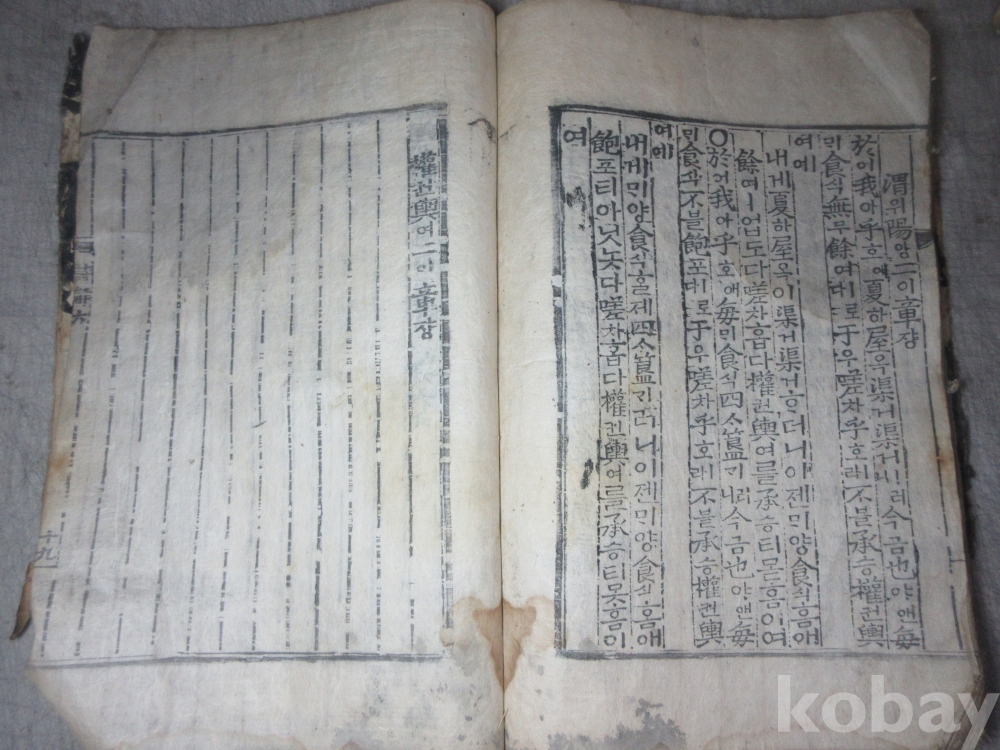 渭위陽양二이章쟝
於어我아乎호애夏하屋옥渠거渠거ㅣ러니今금也야앤每
ᄆᆡ食식無무餘여ㅣ로다于우嗟차乎호ㅣ라不블承승權권輿
여예
내게夏하屋옥이渠거渠거ᄒᆞ더니이젠ᄆᆡ양食식홈애
餘여ㅣ업도다嗟차홉다權권輿여를承승티모ᄃᆞ홈이여
○於어我아乎호애每ᄆᆡ食식四ᄉᆞ簋긔러니今금也야앤每
ᄆᆡ食식不블飽포ㅣ로다于우嗟차乎호ㅣ라不블承승權권輿
여예
내게ᄆᆡ양食식ᄒᆞᆯ제四ᄉᆞ簋긔러니이젠ᄆᆡ양食식홈애
飽포티아닛놋다嗟차홉다權권輿여를承승티못홈이
여
權권輿여二이章쟝
十九
kobay